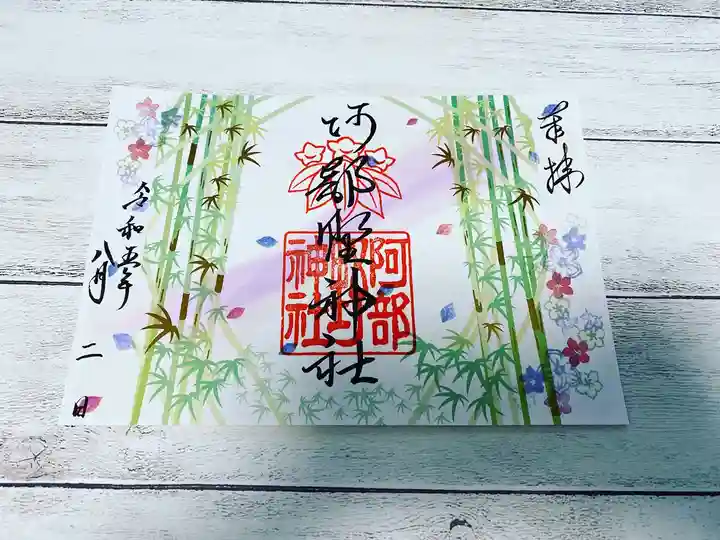 奉拝
阿部野神社
阿部
神社
令和五年
八月
二日